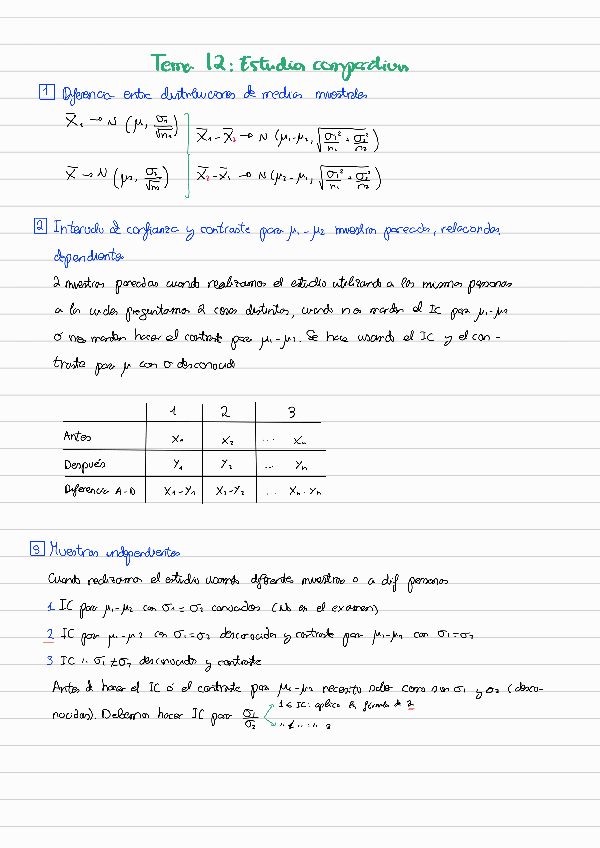 Tema 12: Estudios comparativos
1 Diferencia entre distribuciones de medias muestrales
X̄₁ → N (μ₁, σ₁/√n₁)
X̄₁ - X̄₂ → N (μ₁-μ₂, √(σ₁²/n₁ + σ₂²/n₂))
X̄ → N (μ₂, σ₂/√n₂)
X̄₂ - X̄₁ → N (μ₂-μ₁, √(σ₁²/n₁ + σ₂²/n₂))
2 Intervalo de confianza y contraste para μ₁-μ₂ muestras pareadas, relacionadas,
dependientes
2 muestras pareadas cuando realizamos el estudio utilizando a las mismas personas
a las cuales preguntamos 2 cosas distintas, cuando nos mandan el IC para μ₁-μ₂
o nos mandan hacer el contraste para μ₁-μ₂. Se hace usando el IC y el con-
traste para μ con σ desconocida
1 2 3
Antes X₁ X₂ ... Xₙ
Después Y₁ Y₂ ... Yₙ
Diferencia A-D X₁-Y₁ X₂-Y₂ ... Xₙ-Yₙ
3 Muestras independientes
Cuando realizamos el estudio usando diferentes muestras o a dif personas
1 IC para μ₁-μ₂ con σ₁=σ₂ conocidas (No en el examen)
2 IC para μ₁-μ₂ con σ₁=σ₂ desconocidas y contraste para μ₁-μ₂ con σ₁=σ₂
3 IC " σ₁≠σ₂ desconocido y contraste
Antes d hacer el IC ó el contraste para μ₁-μ₂ necesito saber como son σ₁ y σ₂ (desco-
nocidas). Debemos hacer IC para σ₁/σ₂
1 ∈ IC: aplico la fórmula de 2
" ∉ " : " " 3